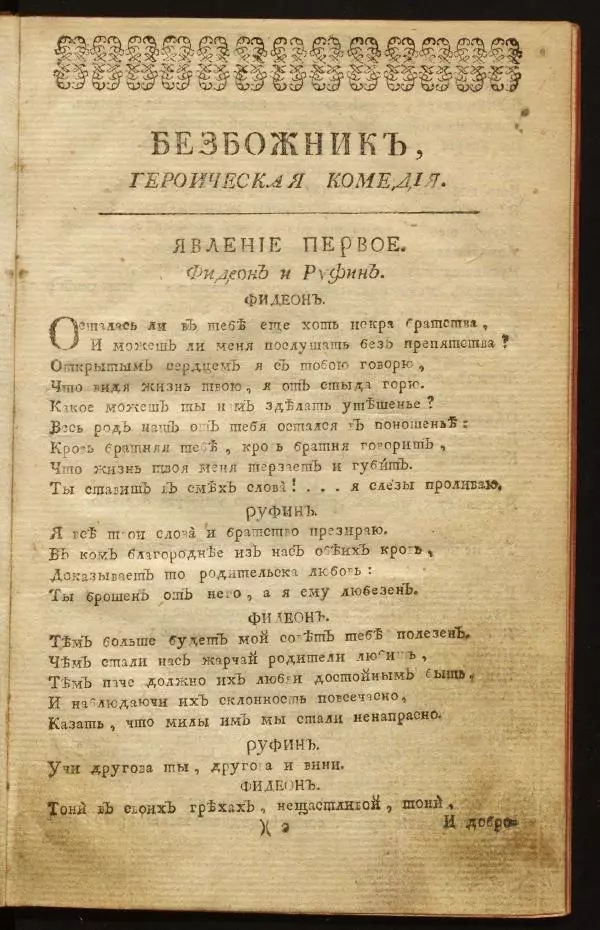 БЕЗБОЖНИКЪ,
ГЕРОИЧЕСКАЯ КОМЕДІЯ.
ЯВЛЕНІЕ ПЕРВОЕ.
Фидеонъ и Руфинъ.
ФИДЕОНЪ.
Осталась ли въ тебѣ еще хоть искра братства,
И можешь ли меня послушать безъ препятства?
Открытымъ сердцемъ я съ тобою говорю,
Что видя жизнь твою, я отъ стыда горю.
Какое можешь ты намъ здѣлать утѣшенье?
Весь родъ нашъ отъ тебя остался въ поношеньѣ:
Кровь братняя тебѣ, кровь братня говоритъ,
Что жизнь твоя меня терзаетъ и губитъ.
Ты ставишь въ смѣхъ слова! . . . я слезы проливаю.
РУФИНЪ.
Я всѣ твои слова и братство презираю.
Въ комъ благороднѣе изъ насъ обѣихъ кровь,
Доказываетъ то родительска любовь:
Ты брошенъ отъ него, а я ему любезенъ.
ФИДЕОНЪ.
Тѣмъ больше будетъ мой совѣтъ тебѣ полезенъ.
Чѣмъ стали насъ жарчай родители любить,
Тѣмъ паче должно ихъ любви достойнымъ быть,
И наблюдаючи ихъ склонность повсечасно,
Казать, что милы имъ мы стали ненапрасно.
РУФИНЪ.
Учи другова ты, другова и вини.
ФИДЕОНЪ.
Тони въ своихъ грѣхахъ, нещастливой, тони,
)( 2
И добро-